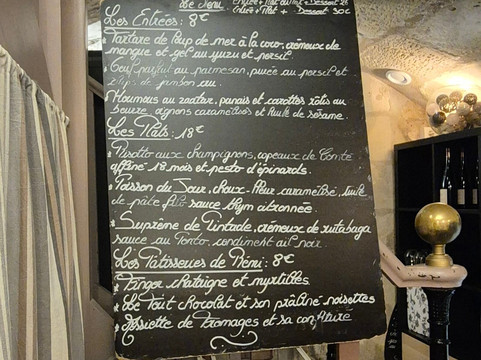 Le Menu Entrée + Plat ou Plat + Dessert 26
Entrée + Plat + Dessert 30€
Les Entrées : 8€
Tartare de loup de mer à la coco, crémeux de
mangue et gel au yuzu et persil.
Oeuf parfait au parmesan, purée au persil et
chips de jambon cru.
Houmous au zaatar, panais et carottes rôtis au
beurre, oignons caramélisés et huile de sésame.
Les Plats : 18€
Risotto aux champignons, copeaux de Comté
affiné 18 mois et pesto d'épinards.
Poisson du Jour, choux-fleur caramélisé, tuile
de pâte filo sauce thym citronnée.
Suprême de Pintade, crémeux de rutabaga
sauce au Porto, condiment ail noir.
Les Patisseries de Rémi : 8€
Finger chataigne et myrtilles.
Le Tout chocolat et son praliné noisettes
Assiette de Fromages et sa confiture